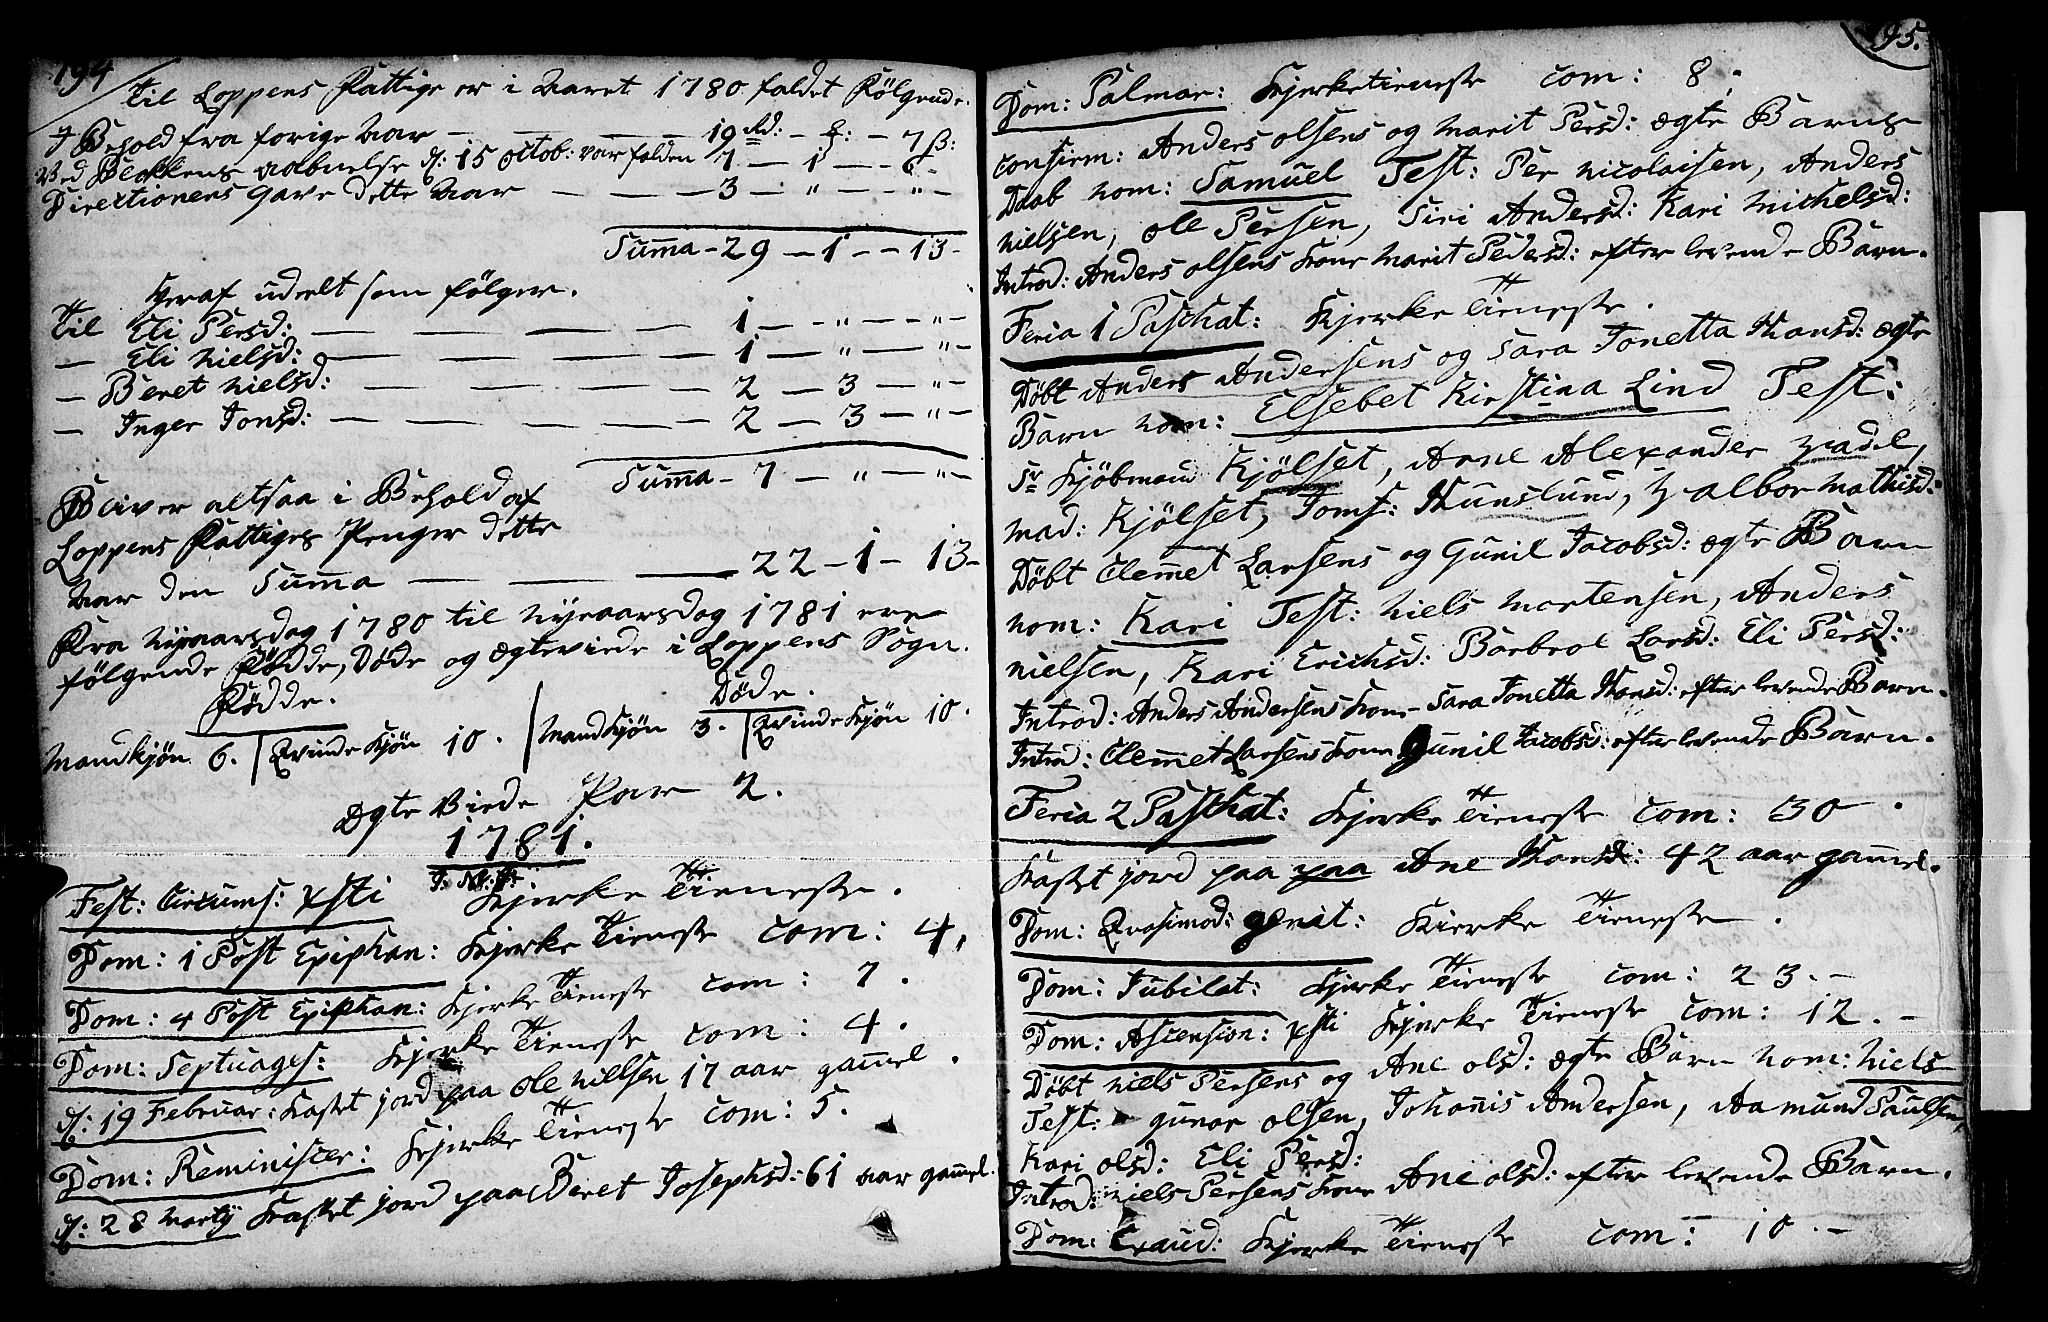 194
Til Loppens Fattige er i Aaret 1780 faldet Følgende.
J Behold fra forige Aar — 19 Rd: — ȝ: — 7 β:
Ved Blokkens aabnelse d: 15 octob: var falden 7 — 1 — 6 —
Directionens Gave dette Aar — 3 — " — " —
Suma — 29 — 1 — 13 —
Heraf udeelt som følger.
Til Eli Persd: — 1 — " — " —
— Eli Nielsd: — 1 — " — " —
— Beret Nielsd: — 2 — 3 — " —
— Inger Jonsd: — 2 — 3 — " —
Suma — 7 — " — " —
Bliver altsaa i Behold af
Loppens Fattiges Penger dette
Aar den Suma — 22 — 1 — 13 —
Fra Nyaarsdag 1780 til Nyeaarsdag 1781 ere
følgende Fødde, Døde og Ægteviede i Loppens Sogn.
Fødde. Døde.
Mandkjøn 6. Qvindekjøn 10. Mandkjøn 3. Qvindekjøn 10.
Ægte Viede Par 2.
1781.
Fest: Circums: Xsti Kjerke Tieneste.
Dom: 1 Post Epiphan: Kjerke Tieneste com: 4.
Dom: 4 Post Epiphan: Kjerke Tieneste com: 7.
Dom: Septuages: Kjerke Tieneste com: 4.
d: 19 Februar: Kastet jord paa Ole Nielsen 17 aar gamel.
Dom: Reminiscer: Kjerke Tieneste com: 5.
d: 28 Martij Kastet jord paa Beret Josephsd: 61 aar gamel.
195.
Dom: Palmar: Kjerketieneste com: 8.
confirm: Anders Olsens og Marit Persd: ægte Barns
Daab nom: Samuel Test: Per Nicolaisen, Anders
Nielsen, Ole Persen, Siri Andersd: Kari Michelsd:
Introd: Anders Olsens Kone Marit Pedersd: efter levende Barn.
Feria 1 Paschat: Kjerke Tieneste.
Døbt Anders Andersens og Sara Jonetta Hansd: ægte
Barn nom: Elsebet Kirstina Lind Test:
Sr Kjøbmand Kjølset, Arne Alexander Zadel,
Mad: Kjølset, Jomf: Hunslund, Zalbor Mathisd:
Døbt Clemet Larsens og Gunil Jacobsd: ægte Barn
nom: Kari Test: Niels Mortensen, Anders
Nielsen, Kari Erichsd: Barbrol Larsd: Eli Persd:
Introd: Anders Andersens Kone Sara Jonetta Hansd: efter levende Barn.
Introd: Clemet Larsens Kone Gunil Jacobsd: efter levende Barn.
Feria 2 Paschat: Kjerke Tieneste com: 30.
Kastet jord paa paa Ane Hansd: 42 aar gamel.
Dom: Qvasimod: genit: Kierke Tieneste.
Dom: Jubilat: Kjerke Tieneste com: 23. —
Dom: Ascension: Xsti Kjerke Tieneste com: 12. —
Døbt Niels Persens og Ane Olsd: ægte Barn nom: Niels
Test: Gunar Olsen, Johanis Andersen, Aamund Paulsen,
Kari Olsd: Eli Persd:
Introd: Niels Persens Kone Ane Olsd: efter levende Barn.
Dom: Exaud: Kjerke Tieneste com: 10. —